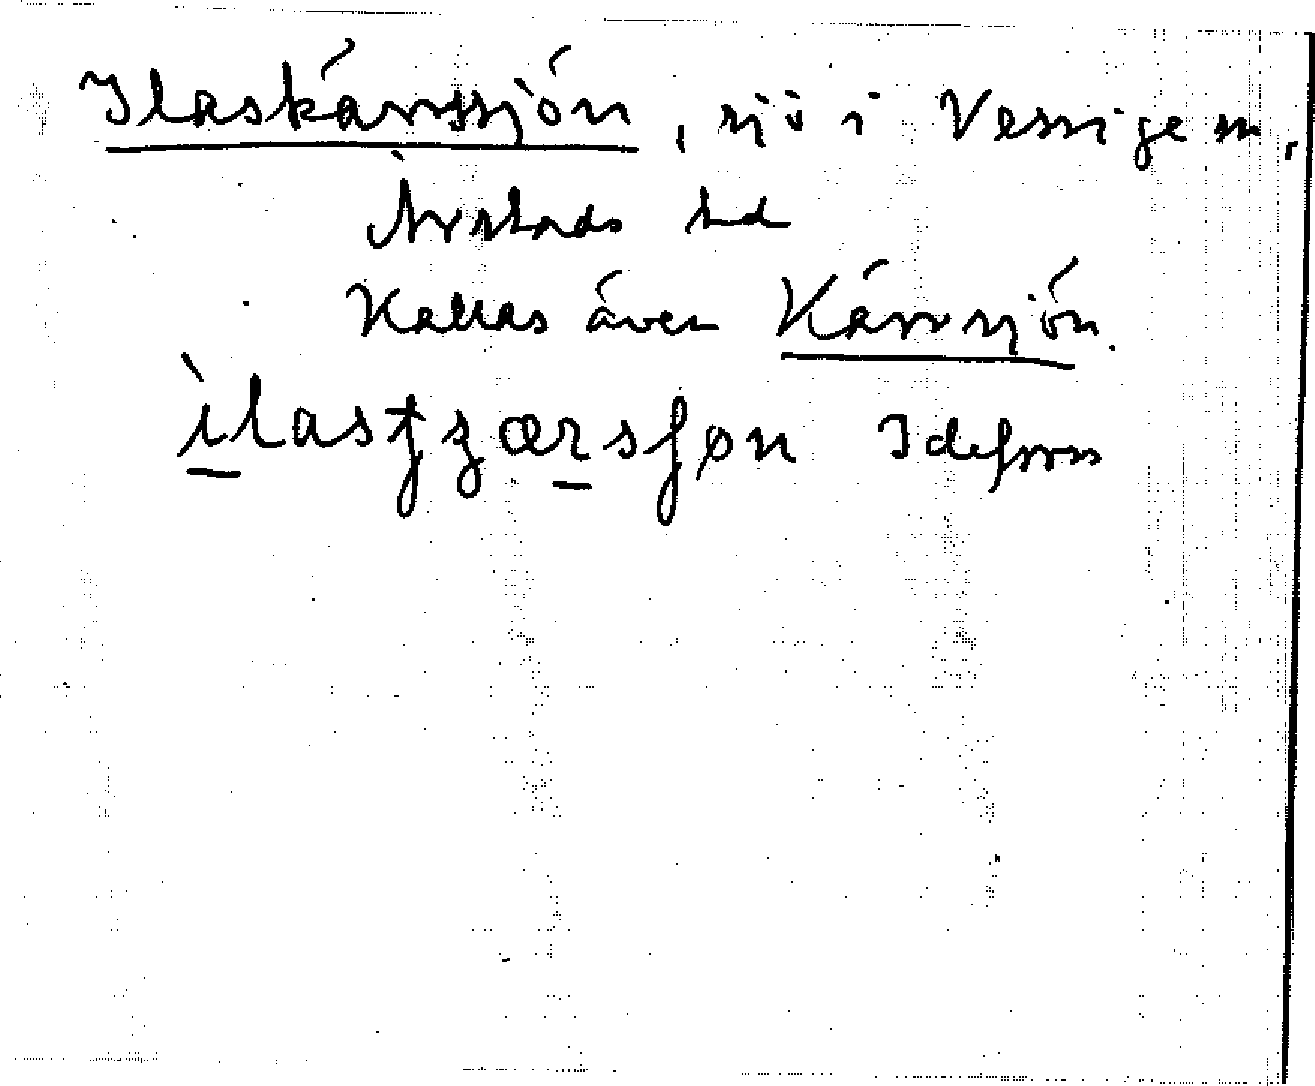 Ilaskärrssjön, sjö i Vessige sn,
Årstads hd
Kallas även Kärrsjön.
ìlas Idefors